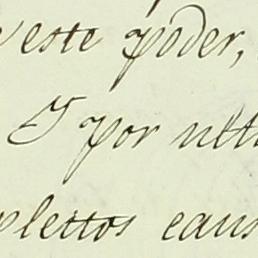 este poder,
Y por ulti
plettos caus